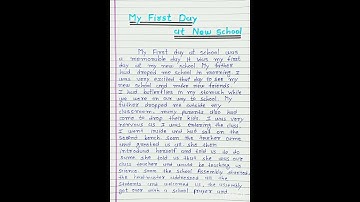 My First Day
at New School
My First day at school was
a memorable day. It was my first
day at my new school. My father
had droped me school in morning I
was very excited that day to see my
new school and make new friends.
I had butterflies in my stomach while
we were on our way to school. My
father dropped me outside my
classroom. many parents also had
come to drop their kids. I was very
nervous as I was entering the class.
I went inside and had sat on the
second bench soon the teacher came
and greeted us all she then
introduced herself and told us to do
same she told us that she was our
class teacher and would be teaching us
science soon the school Assembly started
the Headmaster addressed all the
students and welcomed us. the assembly
got over with a school prayer and